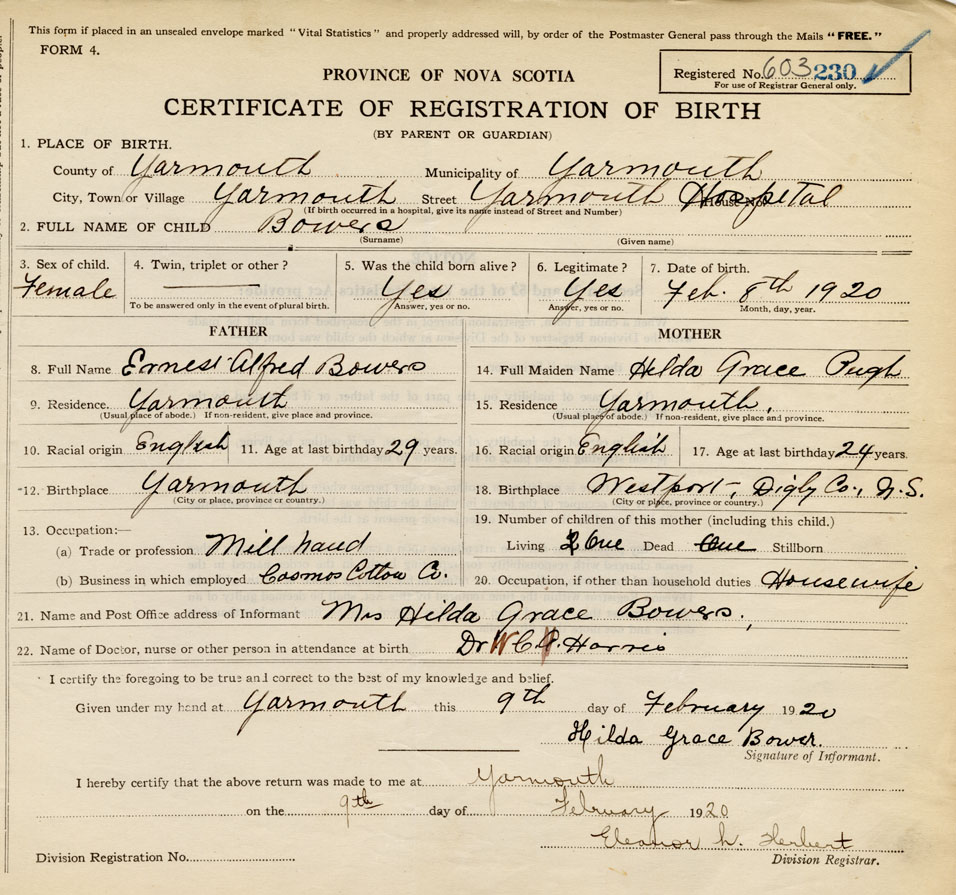 This form if placed in an unsealed envelope marked "Vital Statistics" and properly addressed will, by order of the Postmaster General pass through the Mails "FREE."
FORM 4.
Registered No. 603 230
For use of Registrar General only.
PROVINCE OF NOVA SCOTIA
CERTIFICATE OF REGISTRATION OF BIRTH
(BY PARENT OR GUARDIAN)
1. PLACE OF BIRTH.
County of Yarmouth Municipality of Yarmouth
City, Town or Village Yarmouth Street Yarmouth Hospital House No.
(If birth occurred in a hospital, give its name instead of Street and Number)
2. FULL NAME OF CHILD Bowers
(Surname) (Given name)
3. Sex of child. 4. Twin, triplet or other? 5. Was the child born alive? 6. Legitimate? 7. Date of birth.
Female Yes Yes Feb. 8th 1920
To be answered only in the event of plural birth. Answer, yes or no. Answer, yes or no. Month, day, year.
FATHER MOTHER
8. Full Name Ernest Alfred Bowers 14. Full Maiden Name Hilda Grace Pugh
9. Residence. Yarmouth 15. Residence Yarmouth,
(Usual place of abode.) If non-resident, give place and province. (Usual place of abode.) If non-resident, give place and province.
10. Racial origin English 11. Age at last birthday 29 years. 16. Racial origin English 17. Age at last birthday 24 years.
12. Birthplace Yarmouth 18. Birthplace Westport, Digby Co., N.S.
(City or place, province or country.) (City or place, province or country.)
13. Occupation:— 19. Number of children of this mother (including this child.)
(a) Trade or profession Mill hand Living One Dead One Stillborn
(b) Business in which employed Cosmos Cotton Co. 20. Occupation, if other than household duties Housewife
21. Name and Post Office address of Informant Mrs Hilda Grace Bowers,
22. Name of Doctor, nurse or other person in attendance at birth Dr W C Harris
I certify the foregoing to be true and correct to the best of my knowledge and belief.
Given under my hand at Yarmouth this 9th day of February 1920
Hilda Grace Bower.
Signature of Informant.
I hereby certify that the above return was made to me at Yarmouth
on the 9th day of February 1920
Eleanor L. Herbert
Division Registrar.
Division Registration No.